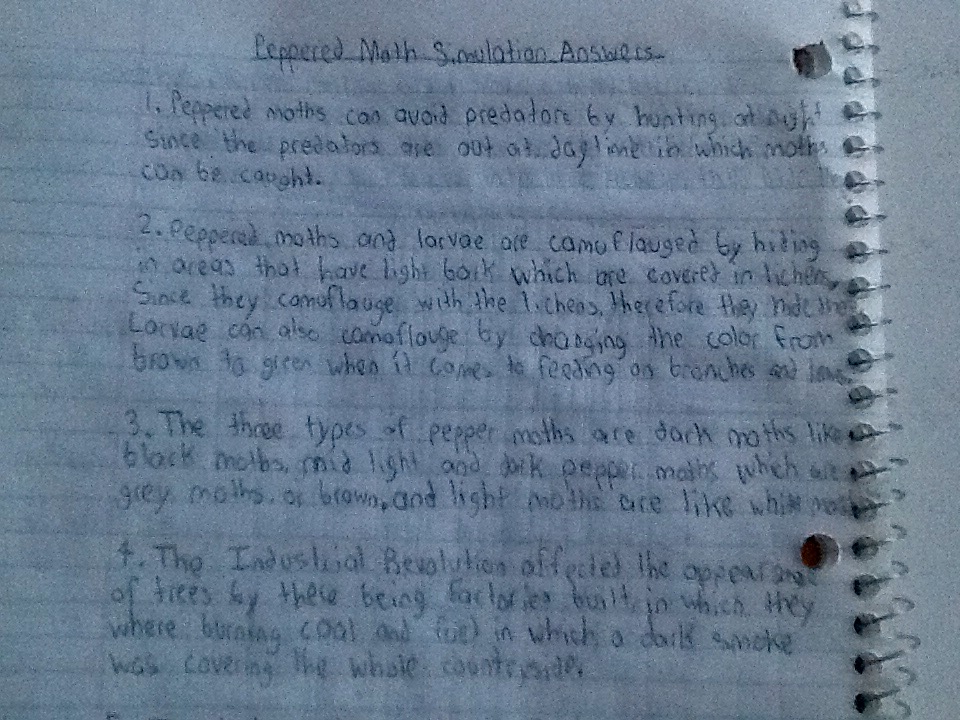 Peppered Moth Simulation Answers
1. Peppered moths can avoid predators by hunting at night
since the predators are out at daytime in which moths
can be caught.
2. Peppered moths and larvae are camoflauged by hiding
in areas that have light bark which are covered in lichens,
Since they camoflauge with the lichens, therefore they hide
Larvae can also camoflauge by changing the color from
brown to green when it comes to feeding on branches and
3. The three types of pepper moths are dark moths like
black moths, mid light and dark pepper moths which are
grey moths, or brown, and light moths are like white
4. The Industrial Revolution affected the appearance
of trees by these being factories built, in which they
where burning coal and fuel in which a dark smoke
was covering the whole countryside.